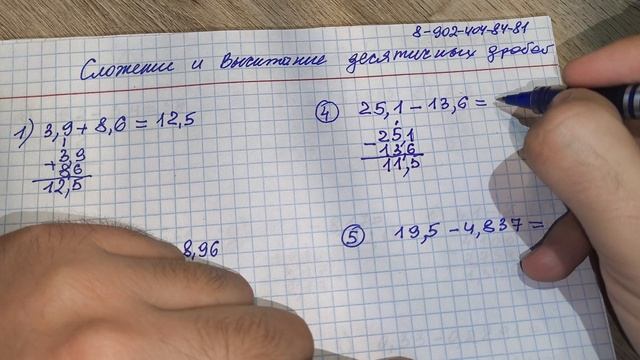 8-902-404-84-81
Сложение и Вычитание десятичных дробей
1) 3,9 + 8,6 = 12,5
+ 3,9
8,6
12,5
8,96
④ 25,1 - 13,6 =
- 25,1
13,6
11,5
⑤ 19,5 - 4,837 =